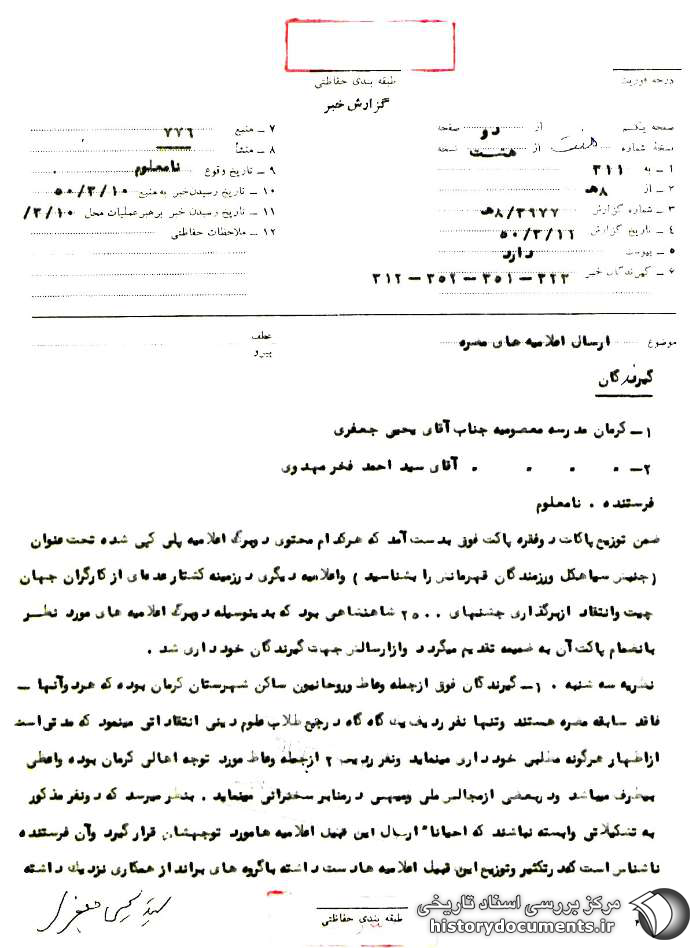 طبقه بندی حفاظتی
درجه فوریت
گزارش خبر
صفحه یکم از دو صفحه
نسخهٔ شماره هشت از هشت نسخه
۱ ـ به ۳۱۱
۲ ـ از ۸هـ
۳ ـ شماره گزارش ۸/۳۹۷۷هـ
۴ ـ تاریخ گزارش ۵۰/۳/۱۲
۵ ـ پیوست دارد
۶ ـ گیرندگان خبر ۳۲۲ – ۳۵۱ – ۳۵۲ – ۳۱۲
۷ ـ منبع ۷۷۶
۸ ـ منشأ
۹ ـ تاریخ وقوع نامعلوم
۱۰ ـ تاریخ رسیدن خبر به منبع ۵۰/۳/۱۰
۱۱ ـ تاریخ رسیدن خبر برهبر عملیات محل /۳/۱۰
۱۲ ـ ملاحظات حفاظتی
موضوع ارسال اعلامیه های مضره
عطف
پیرو
گیرندگان
۱ـ کرمان مدرسه معصومیه جناب آقای یحیی جعفری
۲ـ . . . . آقای سید احمد فخر مهدوی
فرستنده . نامعلوم
ضمن توزیع پاکات دوفقره پاکت فوق بدست آمد که هرکدام محتوی دوبرگ اعلامیه پلی کپی شده تحت عنوان
(جنبش سیاهکل ورزمندگان قهرمانش را بشناسید ) واعلامیه دیگری درزمینه کشتار عده‌ای از کارگران جهان
چیت وانتقاد ازبرگذاری جشنهای ۲۵۰۰ شاهنشاهی بود که بدینوسیله دوبرگ اعلامیه های مورد نظر
بانضمام پاکت آن به ضمیمه تقدیم میگردد وازارسالش جهت گیرندگان خودداری شد .
نظریه سه شنبه . ۱ـ گیرندگان فوق ازجمله وعاظ وروحانیون ساکن شهرستان کرمان بوده که هردوآنها ـ
فاقد سابقه مضره هستند وتنها نفر ردیف یک گاه گاه درجمع طلاب علوم دینی انتقاداتی مینمود که مدتی است
ازاظهار هرگونه مطلبی خودداری مینماید ونفر ردیف ۲ ازجمله وعاظ مورد توجه اهالی کرمان بوده واعظی
بیطرف میباشد ودربعضی ازمجالس ملی ومیهنی درمنابر سخنرانی مینماید . بنظر میرسد که دونفر مذکور
به تشکیلاتی وابسته نباشند که احیانا" ارسال این قبیل اعلامیه هامورد توجهشان قرار گیرد وآن فرستنده
ناشناس است که در تکثیر وتوزیع این قبیل اعلامیه هادست داشته باگروه های برانداز همکاری نزدیک داشته
سید یحیی جعفری
طبقه بندی حفاظتی
مرکز بررسی اسناد تاریخی
historydocuments.ir